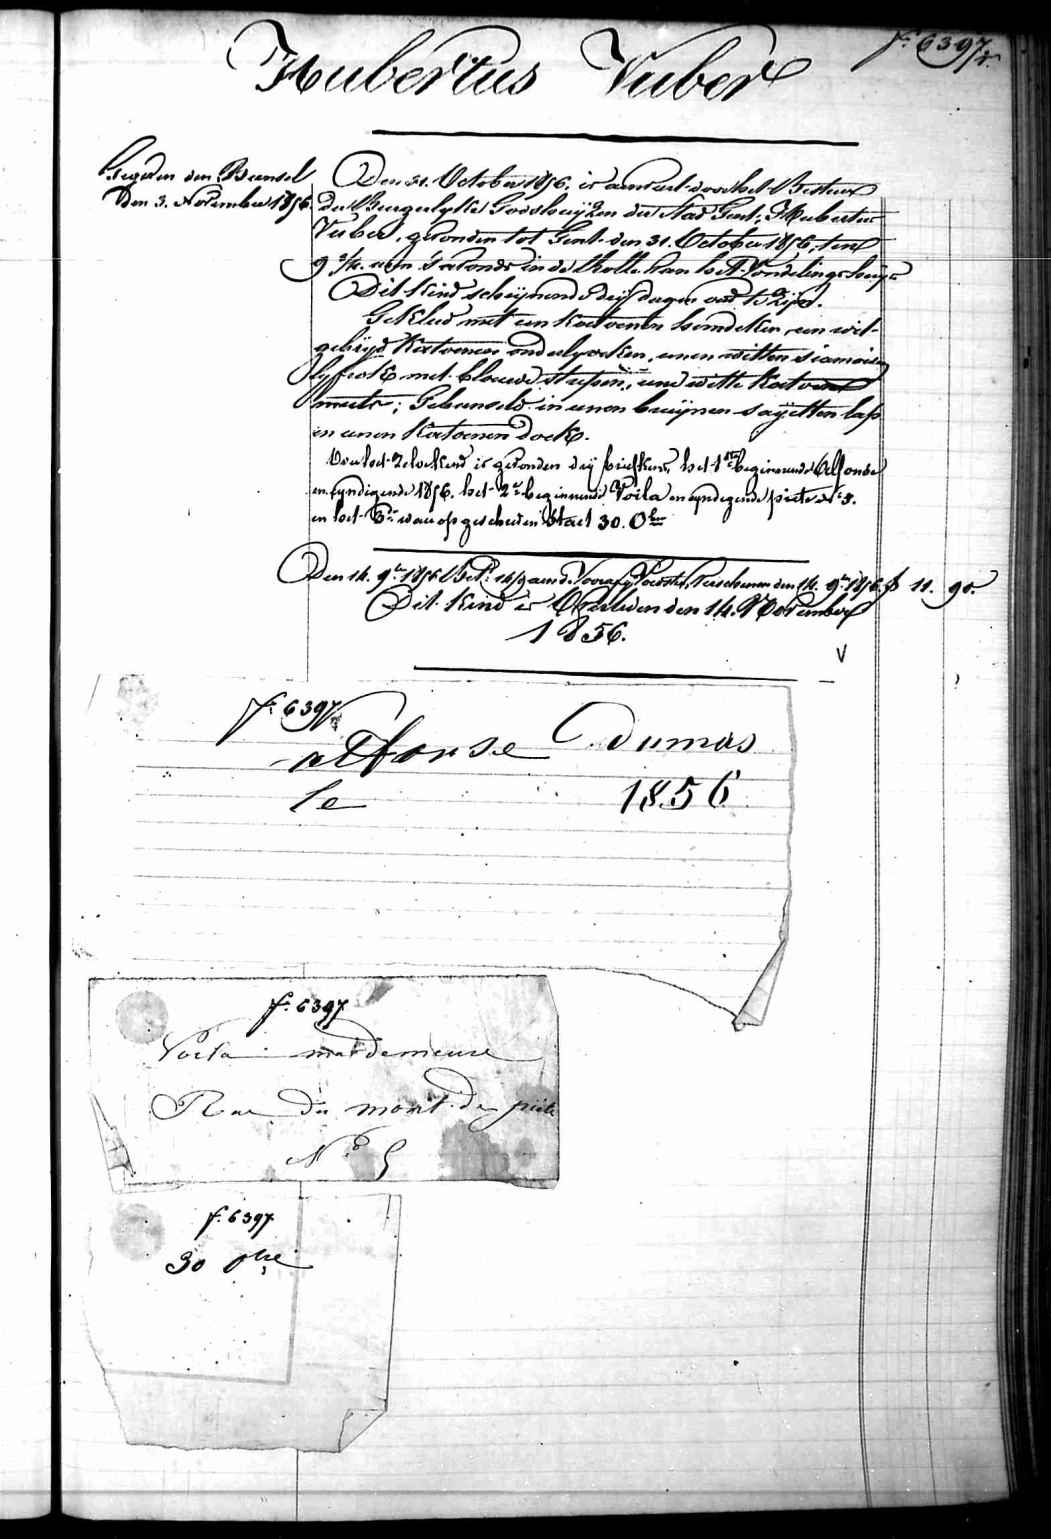 fo. 6397/2.
Hubertus Vuber
den Bunsel
Den 3. November 1856.
Den 31. October 1856. is aenveerd door het Bestuer
der Burgerlyke Godshuyzen der Stad Gent, Hubertus
Vuber, gevonden tot Gent den 31. October 1856, ten
9 ure 's avonds in de Rolle van het Vondelingshuys
Dit Kind scheynende dry dagen oud te zyn.
Gekleed met een Katoenen hemdeken, een wit-
gebryd Katoenen onderlyveken, eenen witten siamoisen
lyfrok met blauwe strepen, eene witte Katoenen
muts; Gebunseld in eenen bruynen sayetten lap
en eenen Katoenen doek.
Van het Zelve Kind is gevonden dry briefkens, het 1ste beginnende Alfonse
en eyndigende 1856. het 2de beginnende Voila en eyndigende piété No 5.
en het 3de waer op geschreven staet 30. 8bre
Den 14. 9bre 1856 verschenen den 14. 9bre 1856. f 11. 90.
Dit Kind is Overleden den 14. November
1856.
V
fo. 6397
alfonse Dumas
le 1856
fo. 6397
Voila mardemeure
Rue Du mont de piété
No 5
fo. 6397
30 8bre